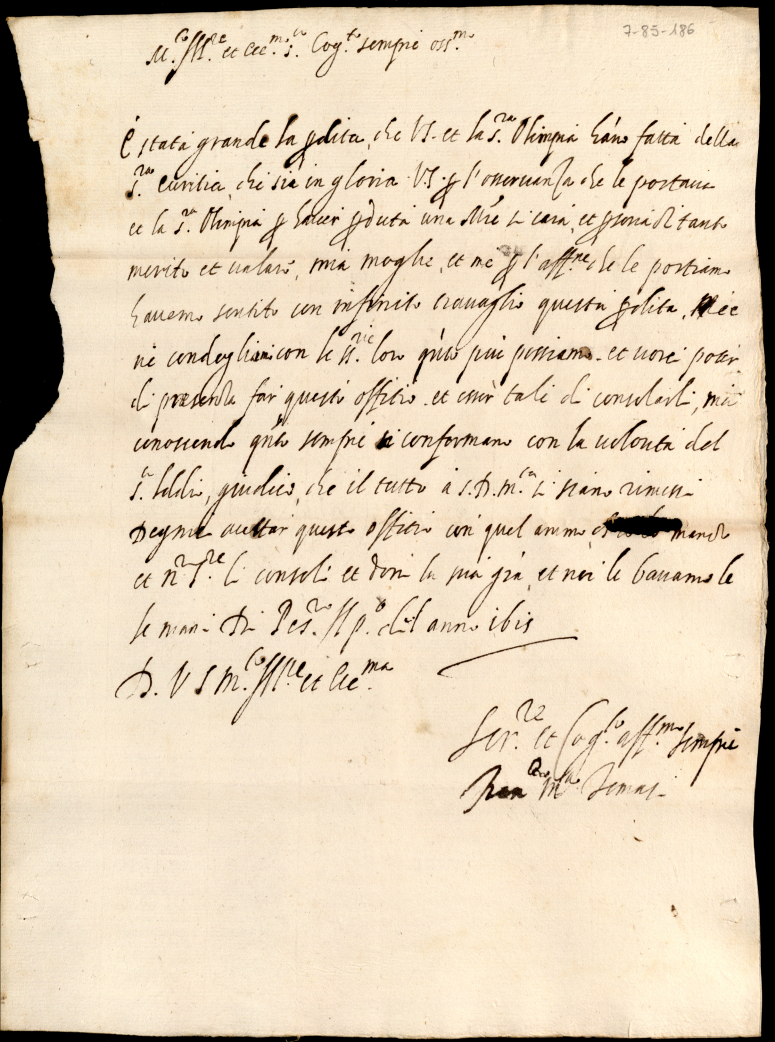 7-85-186
M.to Ill.re et Ecc.mo s.r Cog.to sempre oss.mo
È stata grande la pdita, che VS. et la s.ra Olimpia hano fatta della
s.ra che sia in gloria VS. p l'osservanza che le portava
et la s.ra Olimpia p haver pduta una Mre si cara, et psona di tanto
merito et valore, mia moglie, et me p l'aff.ne che le portiamo
havemo sentito con infinito travaglio questa pdita,
ne condogliamo con le ss.rie loro qto piu possiamo. et vorei poter
di presenza far questo offitio et esser tale di consolarli, ma
conoscendo qto sempre si conformano con la volontà del
s.r Iddio, giudico, che il tutto a S.D.M.tà si siano rimessi
Degnisi accettar questo offitio con quel animo mando
et N.ro S.re li consoli et doni la sua gra, et noi le basciamo le
le mani Di
D. V S M.to Ill.re et Ecc.ma
Ser.re et Cog.to aff.mo sempre